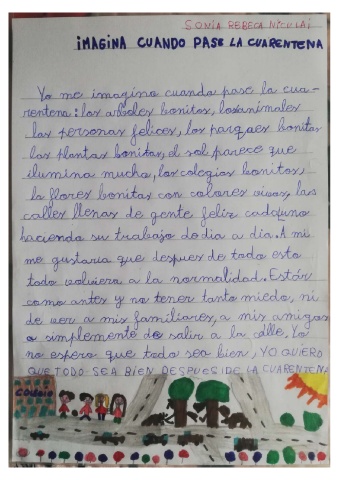 SONIA REBECA NICOLAI
iMAGINA CUANDO PASE LA CUARENTENA
Yo me imagino cuando pase la cua-
rentena: los arboles bonitos, los animales
las personas felices, los parques bonitos
las plantas bonitas, el sol parece que
ilumina mucho, los colegios bonitos,
la flores bonitas con colores vivos, las
calles llenas de gente feliz cada uno
haciendo su trabajo do dia a dia. A mi
me gustaria que despues de todo esto
todo volviera a la normalidad. Estár
como antes y no tener tanto miedo, ni
de ver a mis familiares, a mis amigos
o simplemente de salir a la calle. Yo
no espero que todo sea bien, YO QUIERO
QUE TODO SEA BIEN DESPUES DE LA CUARENTENA
COLEGIO